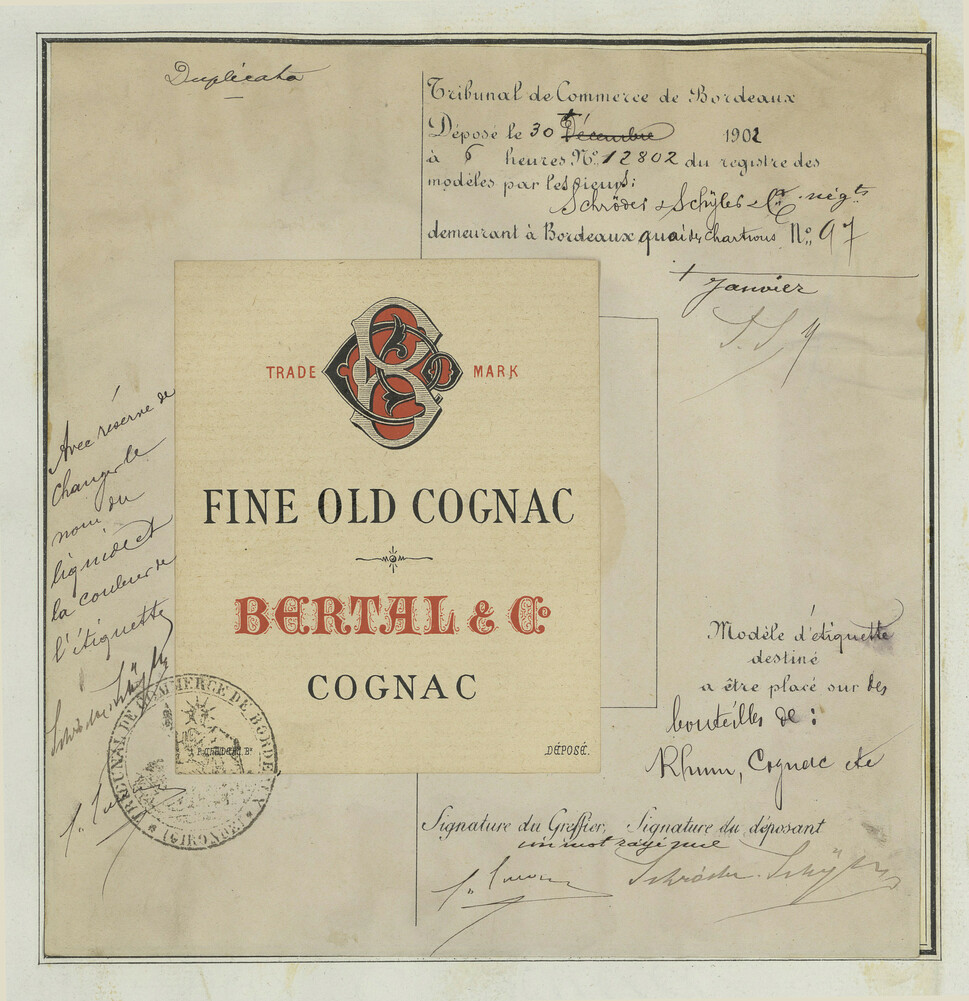 Duplicata
Tribunal de Commerce de Bordeaux
Déposé le 30 Décembre 1902
à 6 heures N° 12802 du registre des
modèles par les sieurs:
Schröder & Schÿler & Cie négts
demeurant à Bordeaux quai des Chartrons N° 97
+ Janvier
S. S. y
TRADE MARK
FINE OLD COGNAC
BERTAL & Co
COGNAC
DÉPOSÉ.
Avec réserve de
changer le
nom du
liquide et
la couleur de
l'étiquette
Schröder Schÿler
TRIBUNAL DE COMMERCE DE BORDEAUX
(GIRONDE)
Modèle d'étiquette
destiné
a être placé sur des
bouteilles de :
Rhum, Cognac etc
Signature du Greffier, Signature du déposant
un mot rayé nul
Schröder Schÿler